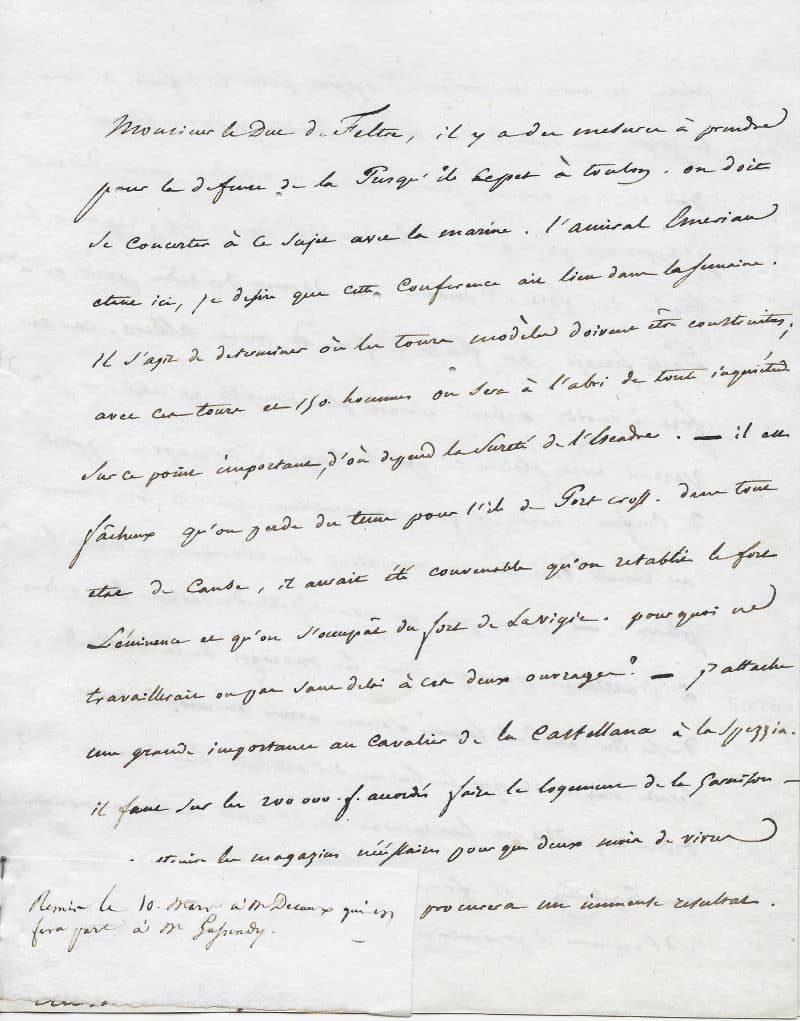 Monsieur le Duc de Feltre, il y a des mesures à prendre
pour la defense de la Presqu'ile Cepet à toulon. on doit
se concerter à ce sujet avec la marine. l'amiral Emeriau
étant ici, je desire que cette Conference ait lieu dans la semaine.
Il s'agit de determiner où les tours modèles doivent être construites;
avec ces tours et 150. hommes on sera à l'abri de toute inquiétude
sur ce point important, d'où depend la sureté de l'Escadre. — il est
fâcheux qu'on perde du tems pour l'ile de Port cross. dans tout
etat de Cause, il aurait été convenable qu'on retablit le fort
L'éminence et qu'on s'occupât du fort de La Vigie. pourquoi ne
travaillerait on pas sans delai à ces deux ouvrages? — j'attache
une grande importance au Cavalier de la Castellana à la Spezzia.
il faut sur les 200 000. f. accordés faire le logement de la Garnison —
les magasins nécessaires pour que deux mois de vivres
procurera un immense resultat.
Remis le 10. Mars à Mr Decaux qui en
fera part à Mr Gassendy.